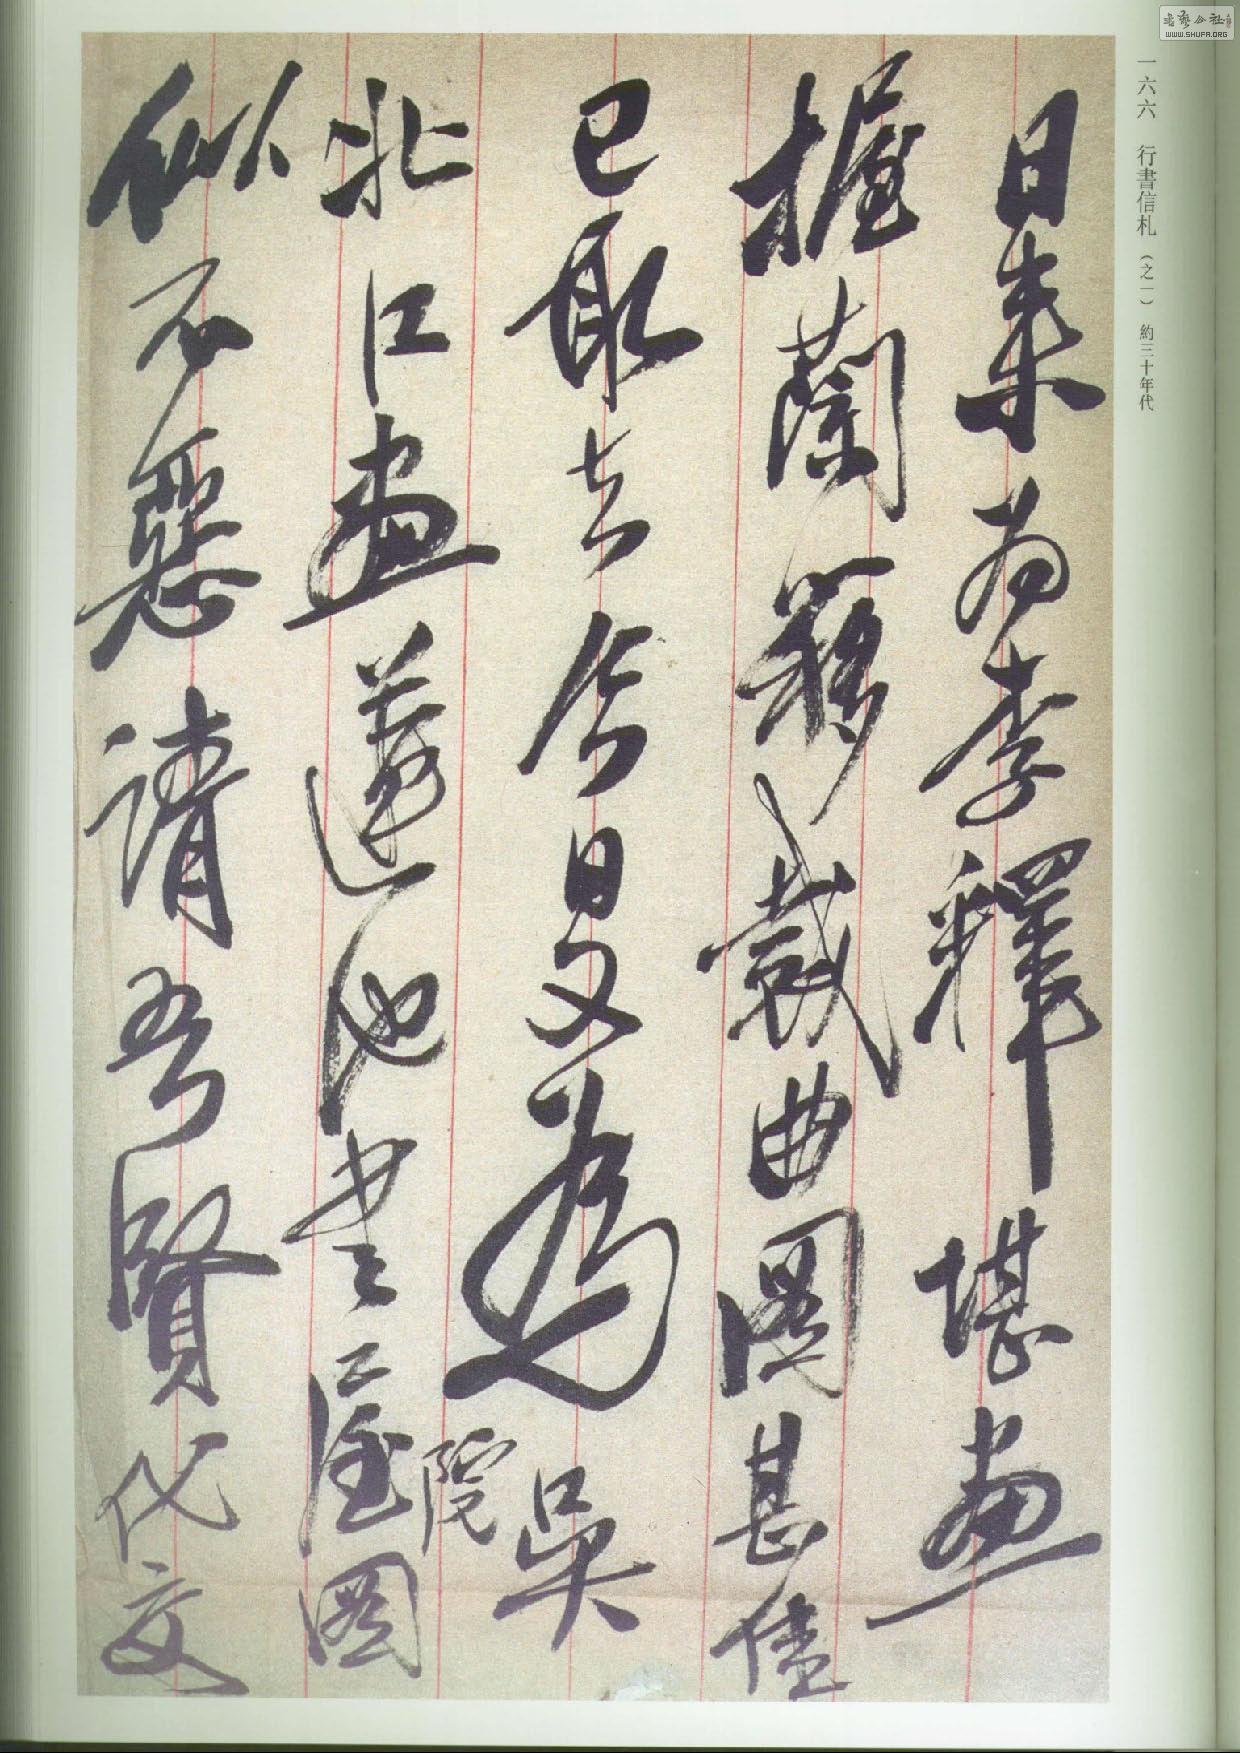 日來為李釋堪畫
握蘭簃裁曲圖甚佳
已取去今日又為吳
北江畫蓮池書
院
圖
似不惡請吾賢代交
一六六 行書信札 (之一) 約三十年代
WWW.SHUFA.ORG